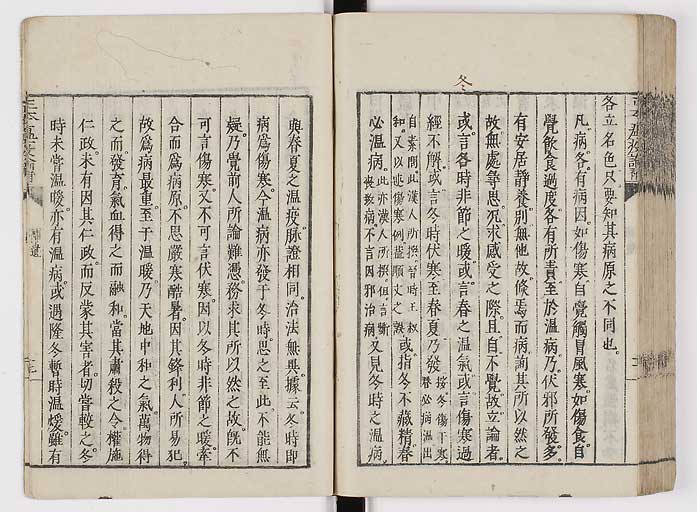 各立名色只要知其病原之不同也
凡病各有病因如傷寒自覺觸冒風寒如傷食自
覺飲食過度各有所責至於溫病乃伏邪所發多
有安居靜養別無他故倏焉而病詢其所以然之
故無處尋思況求感受之際且自不覺故立論者
或言各時非節之暖或言春之溫氣或言傷寒過
冬
經不解或言冬時伏寒至春夏乃發按冬傷于寒
春必病溫出
自素問此漢人所撰晉時王叔
和又以述傷寒例蓋順文之誤或指冬不藏精春
必溫病此亦漢人所撰但言斲
喪致病不言因邪治病又見冬時之溫病
與春夏之溫疫脉證相同治法無異據云冬時即
病為傷寒今溫病亦發于冬時思之至此不能無
疑乃覺前人所論難憑務求其所以然之故既不
可言傷寒又不可言伏寒因以冬時非節之暖牽
合而為病原不思嚴寒酷暑因其鋒利人所易犯
故為病最重至于溫暖乃天地中和之氣萬物得
之而發育氣血得之而融和當其肅殺之令權施
仁政未有因其仁政而反蒙其害者切嘗較之冬
時未嘗溫暖亦有溫病或遇隆冬暫時溫煖雖有
補遺